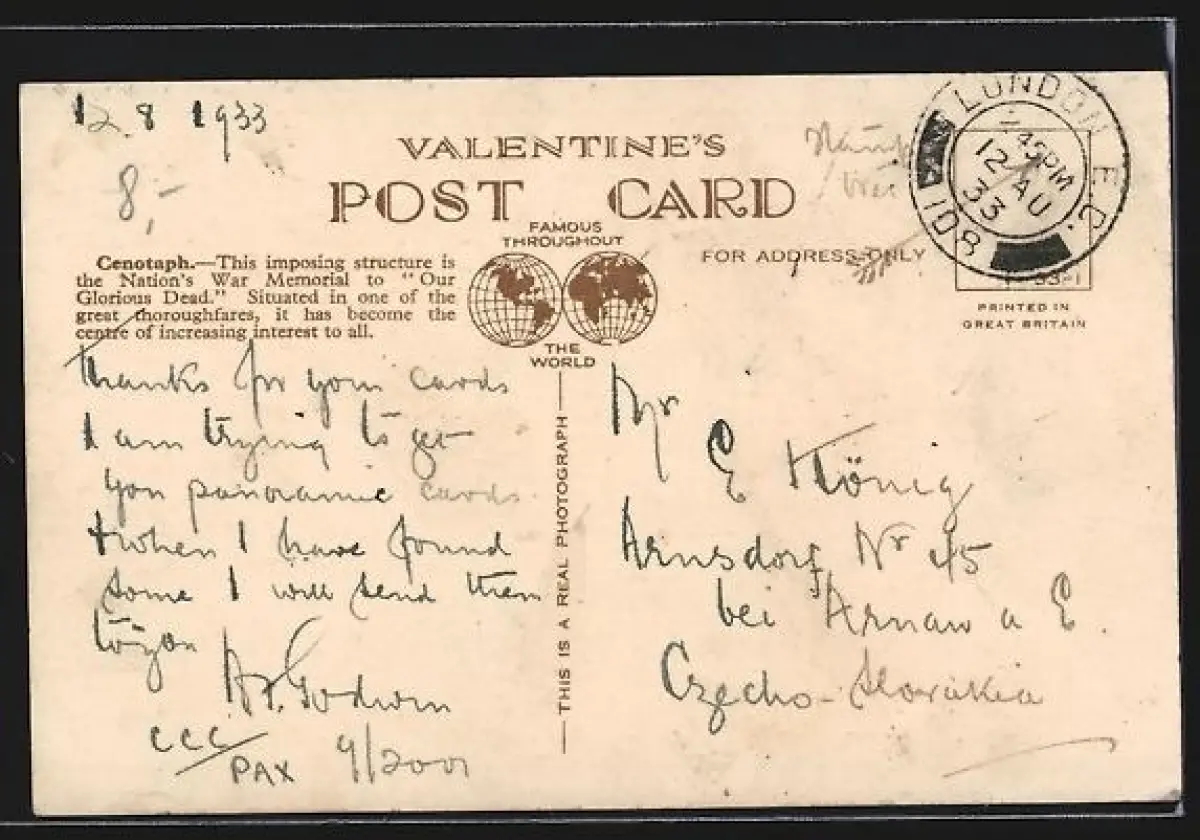 12.8 1933
8,-
VALENTINE'S
POST CARD
FAMOUS
THROUGHOUT
THE
WORLD
FOR ADDRESS ONLY
LONDON E.C.
45PM
12 AU
33
108
PRINTED IN
GREAT BRITAIN
Cenotaph.—This imposing structure is
the Nation's War Memorial to "Our
Glorious Dead." Situated in one of the
great thoroughfares, it has become the
centre of increasing interest to all.
Thanks for your cards
I am trying to get
you panoramic cards
+ when I have found
some I will send them
to you
Godwin
CCC/
PAX 9/2001
THIS IS A REAL PHOTOGRAPH
Mr
E König
Arnsdorf Nr 45
bei Arnaw a E.
Czecho-Slovakia